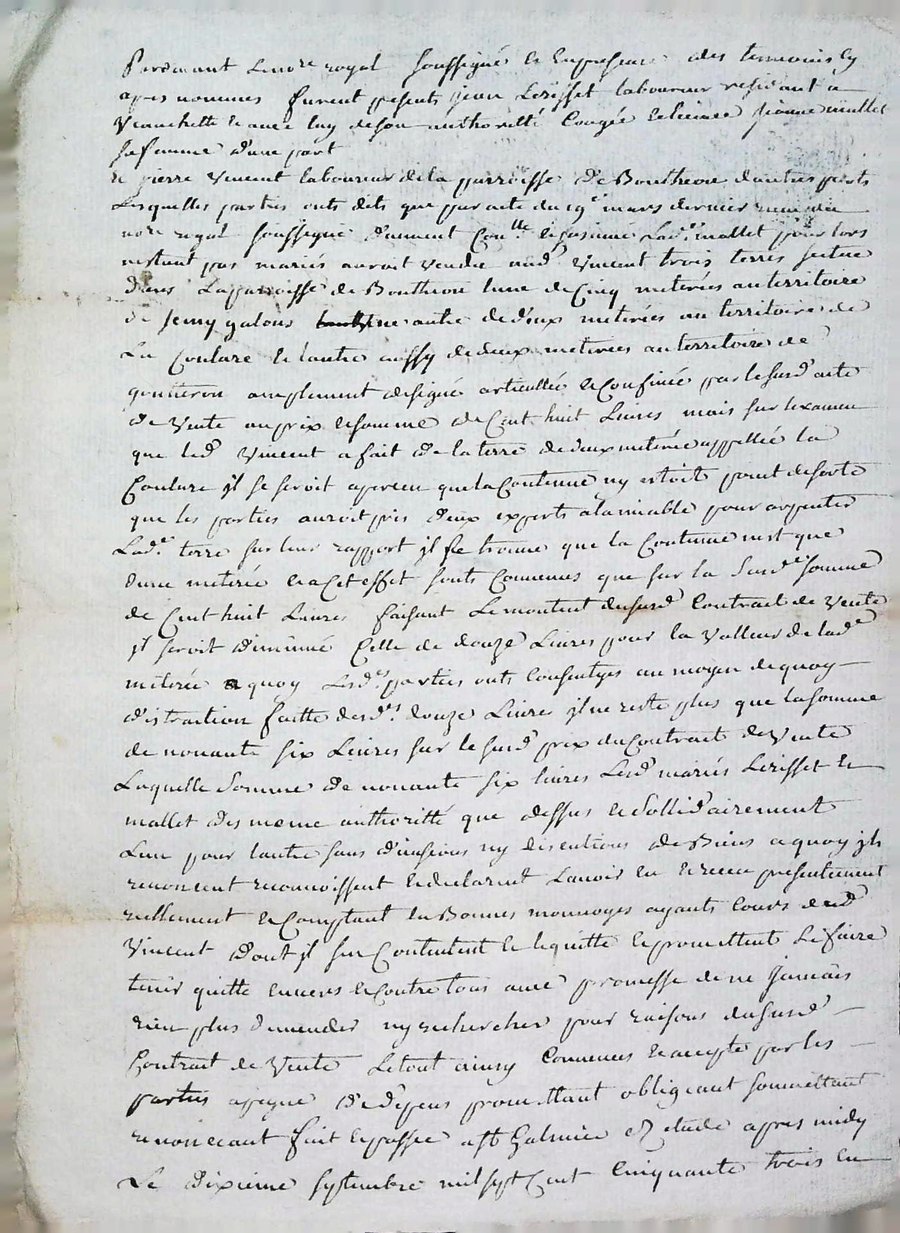 Pardevant Lenore royal soussigné et en presence des temoins cy
apres nommes furent presents Jean Lerisset laboureur residant a
Veauchette et avec luy de son authoritté congée et licence Jeanne mallet
sa femme d'une part
et pierre Vincent laboureur de la parroisse de Boutheon d'autres parts
Lesquelles parties onts dits que par acte du 19e mars dernier receu du
nore royal soussigne dument Conlle Lade mallet pour lors
nestant pas mariés auroit vendu aud Vincent trois terres scitue
dans La parroisse de Boutheon lune de Cinq meterées au territoire
de Jemy galons une autre de deux meterées au territoire de
La Couture et lautre aussy de deux meterées au territoire de
amplement designé articullée et Confinée par le susd acte
de Vente au prix et somme de Cent huit Livres mais sur lexamen
que led Vincent a fait de la terre de deux meterée appellée la
Couture jl se seroit aperceu que la Contenue ny estoit point de sorte
que les parties auroit pris deux experts a lamiable pour arpenter
Lade terre sur leur rapport jl se trouve que la Contenue nest que
dune meterée et a Cet effet sonts Convenues que sur la susde somme
de Cent huit Livres faisant Le montent du susd Contrait de Vente
jl seroit diminué Celle de douze Livres pour la Valleur de lade
meterée a quoy Lesdes parties onts Consentyes au moyen de quoy
distraction faitte desdes douze Livres jl ne reste plus que la somme
de nonante six Livres sur le susd prix du Contrait de Vente
Laquelle Somme de nonante six livres Lesd mariés Lerisset et
mallet des meme authoritté que dessus et Sollidairement
Lun pour lautre sans division ny discutions de Biens a quoy jls
renoncent reconnoissent et declarent Lavoir eu et receu presentement
reellement et Comptant en Bonnes monnoyes ayants Cours dud
Vincent dont jl sen Contentent et lequitte et promettent Le faire
tenir quitte envers et Contre tous avec promesse de ne Jamais
rien plus demender ny rechercher pour raisons du susd
Contrait de Vente Le tout ainsy Convenues et accepté par les
parties a peyne de depens promettant obligeant soumettant
renoncant fait et passée a st Galmier etude apres midy
Le dixieme septembre mil sept Cent Cinquante trois en